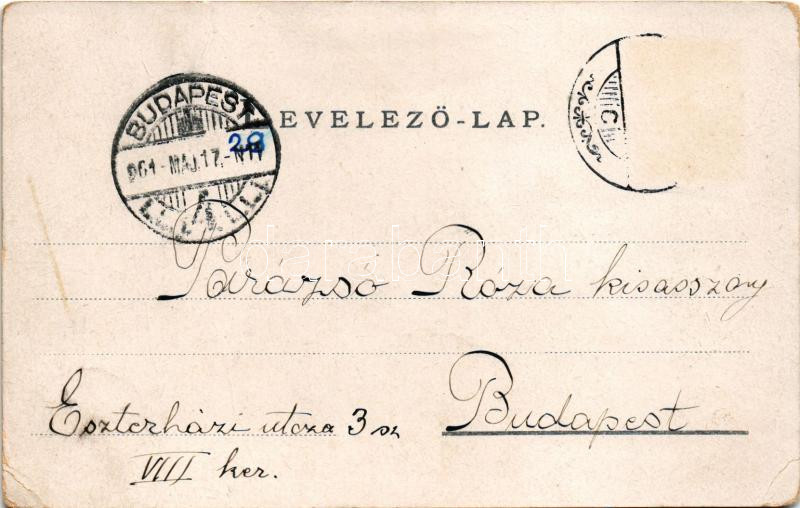 BUDAPEST
28
961-MÁJ.17.-N11
EVELEZŐ-LAP.
C
Parázsó Róza kisasszony
Budapest
Eszterházi utcza 3 sz
VIII ker.
darabanth